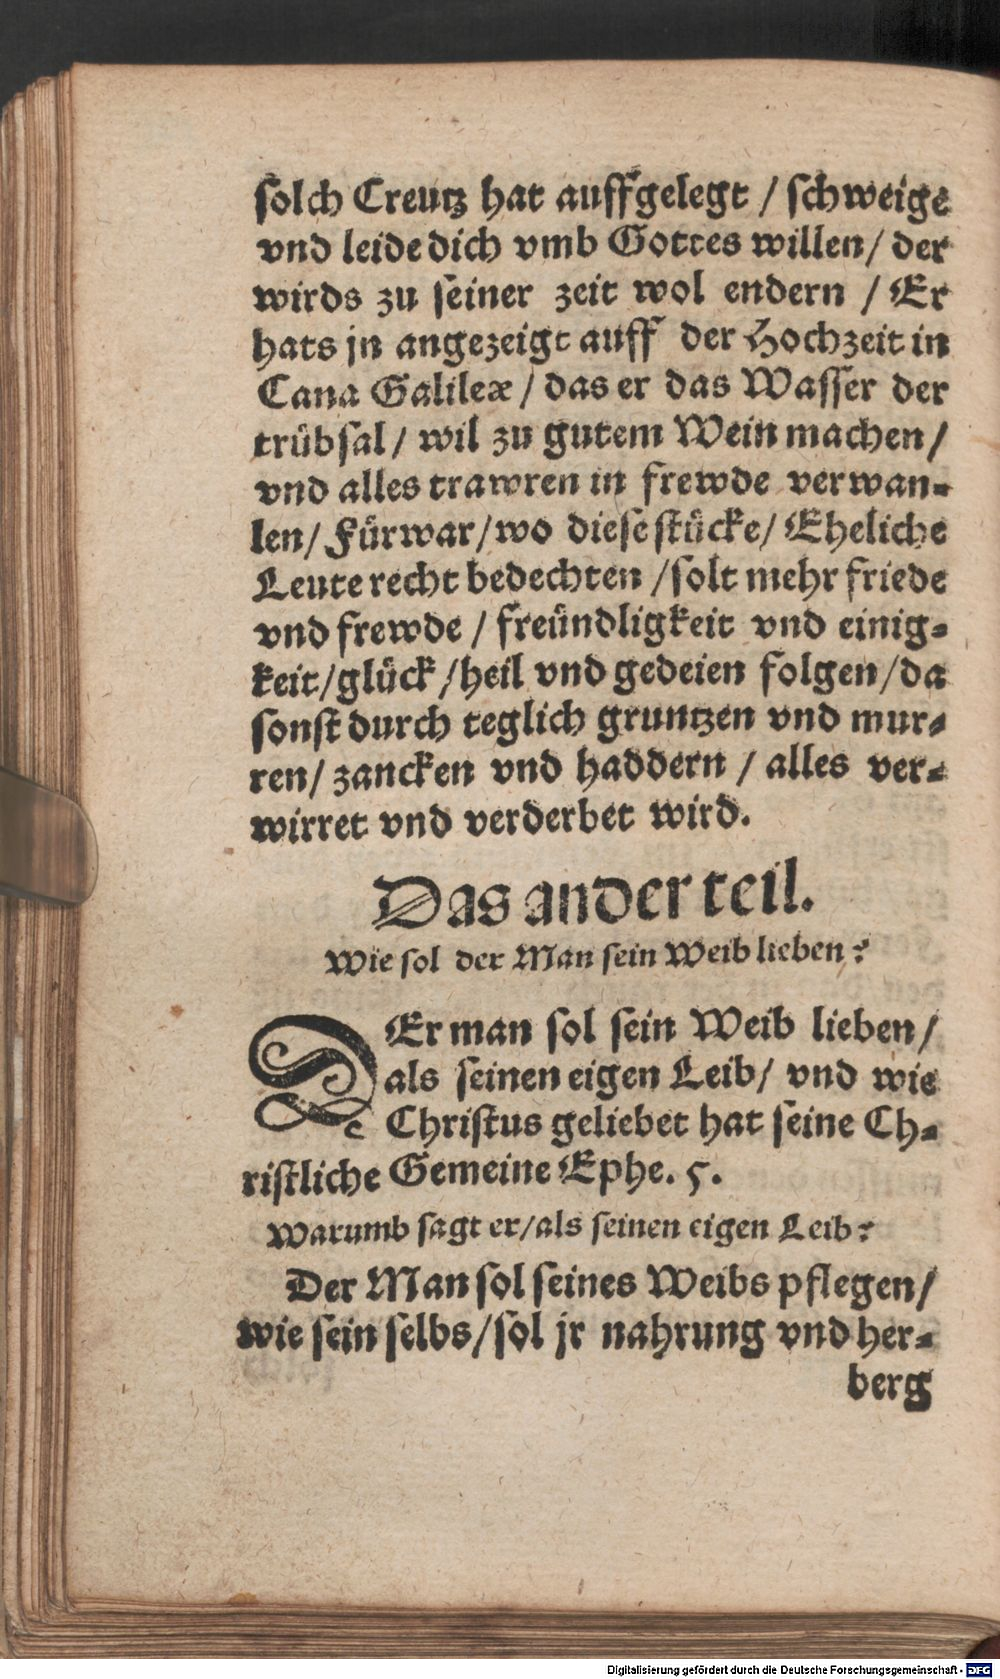 solch Creutz hat auffgelegt / schweige
vnd leide dich vmb Gottes willen / der
wirds zu seiner zeit wol endern / Er
hats jn angezeigt auff der Hochzeit in
Cana Galileæ / das er das Wasser der
trübsal / wil zu gutem Wein machen /
vnd alles trawren in frewde verwan-
len / Fürwar / wo diese stücke / Eheliche
Leute recht bedechten / solt mehr friede
vnd frewde / freündligkeit vnd einig-
keit / glück / heil vnd gedeien folgen / da
sonst durch teglich gruntzen vnd mur-
ren / zancken vnd haddern / alles ver-
wirret vnd verderbet wird.
Das ander teil.
Wie sol der Man sein Weib lieben?
DEr man sol sein Weib lieben /
als seinen eigen Leib / vnd wie
Christus geliebet hat seine Ch-
ristliche Gemeine Ephe. 5.
Warumb sagt er / als seinen eigen Leib?
Der Man sol seines Weibs pflegen /
wie sein selbs / sol jr nahrung vnd her-
berg
Digitalisierung gefördert durch die Deutsche Forschungsgemeinschaft - DFG